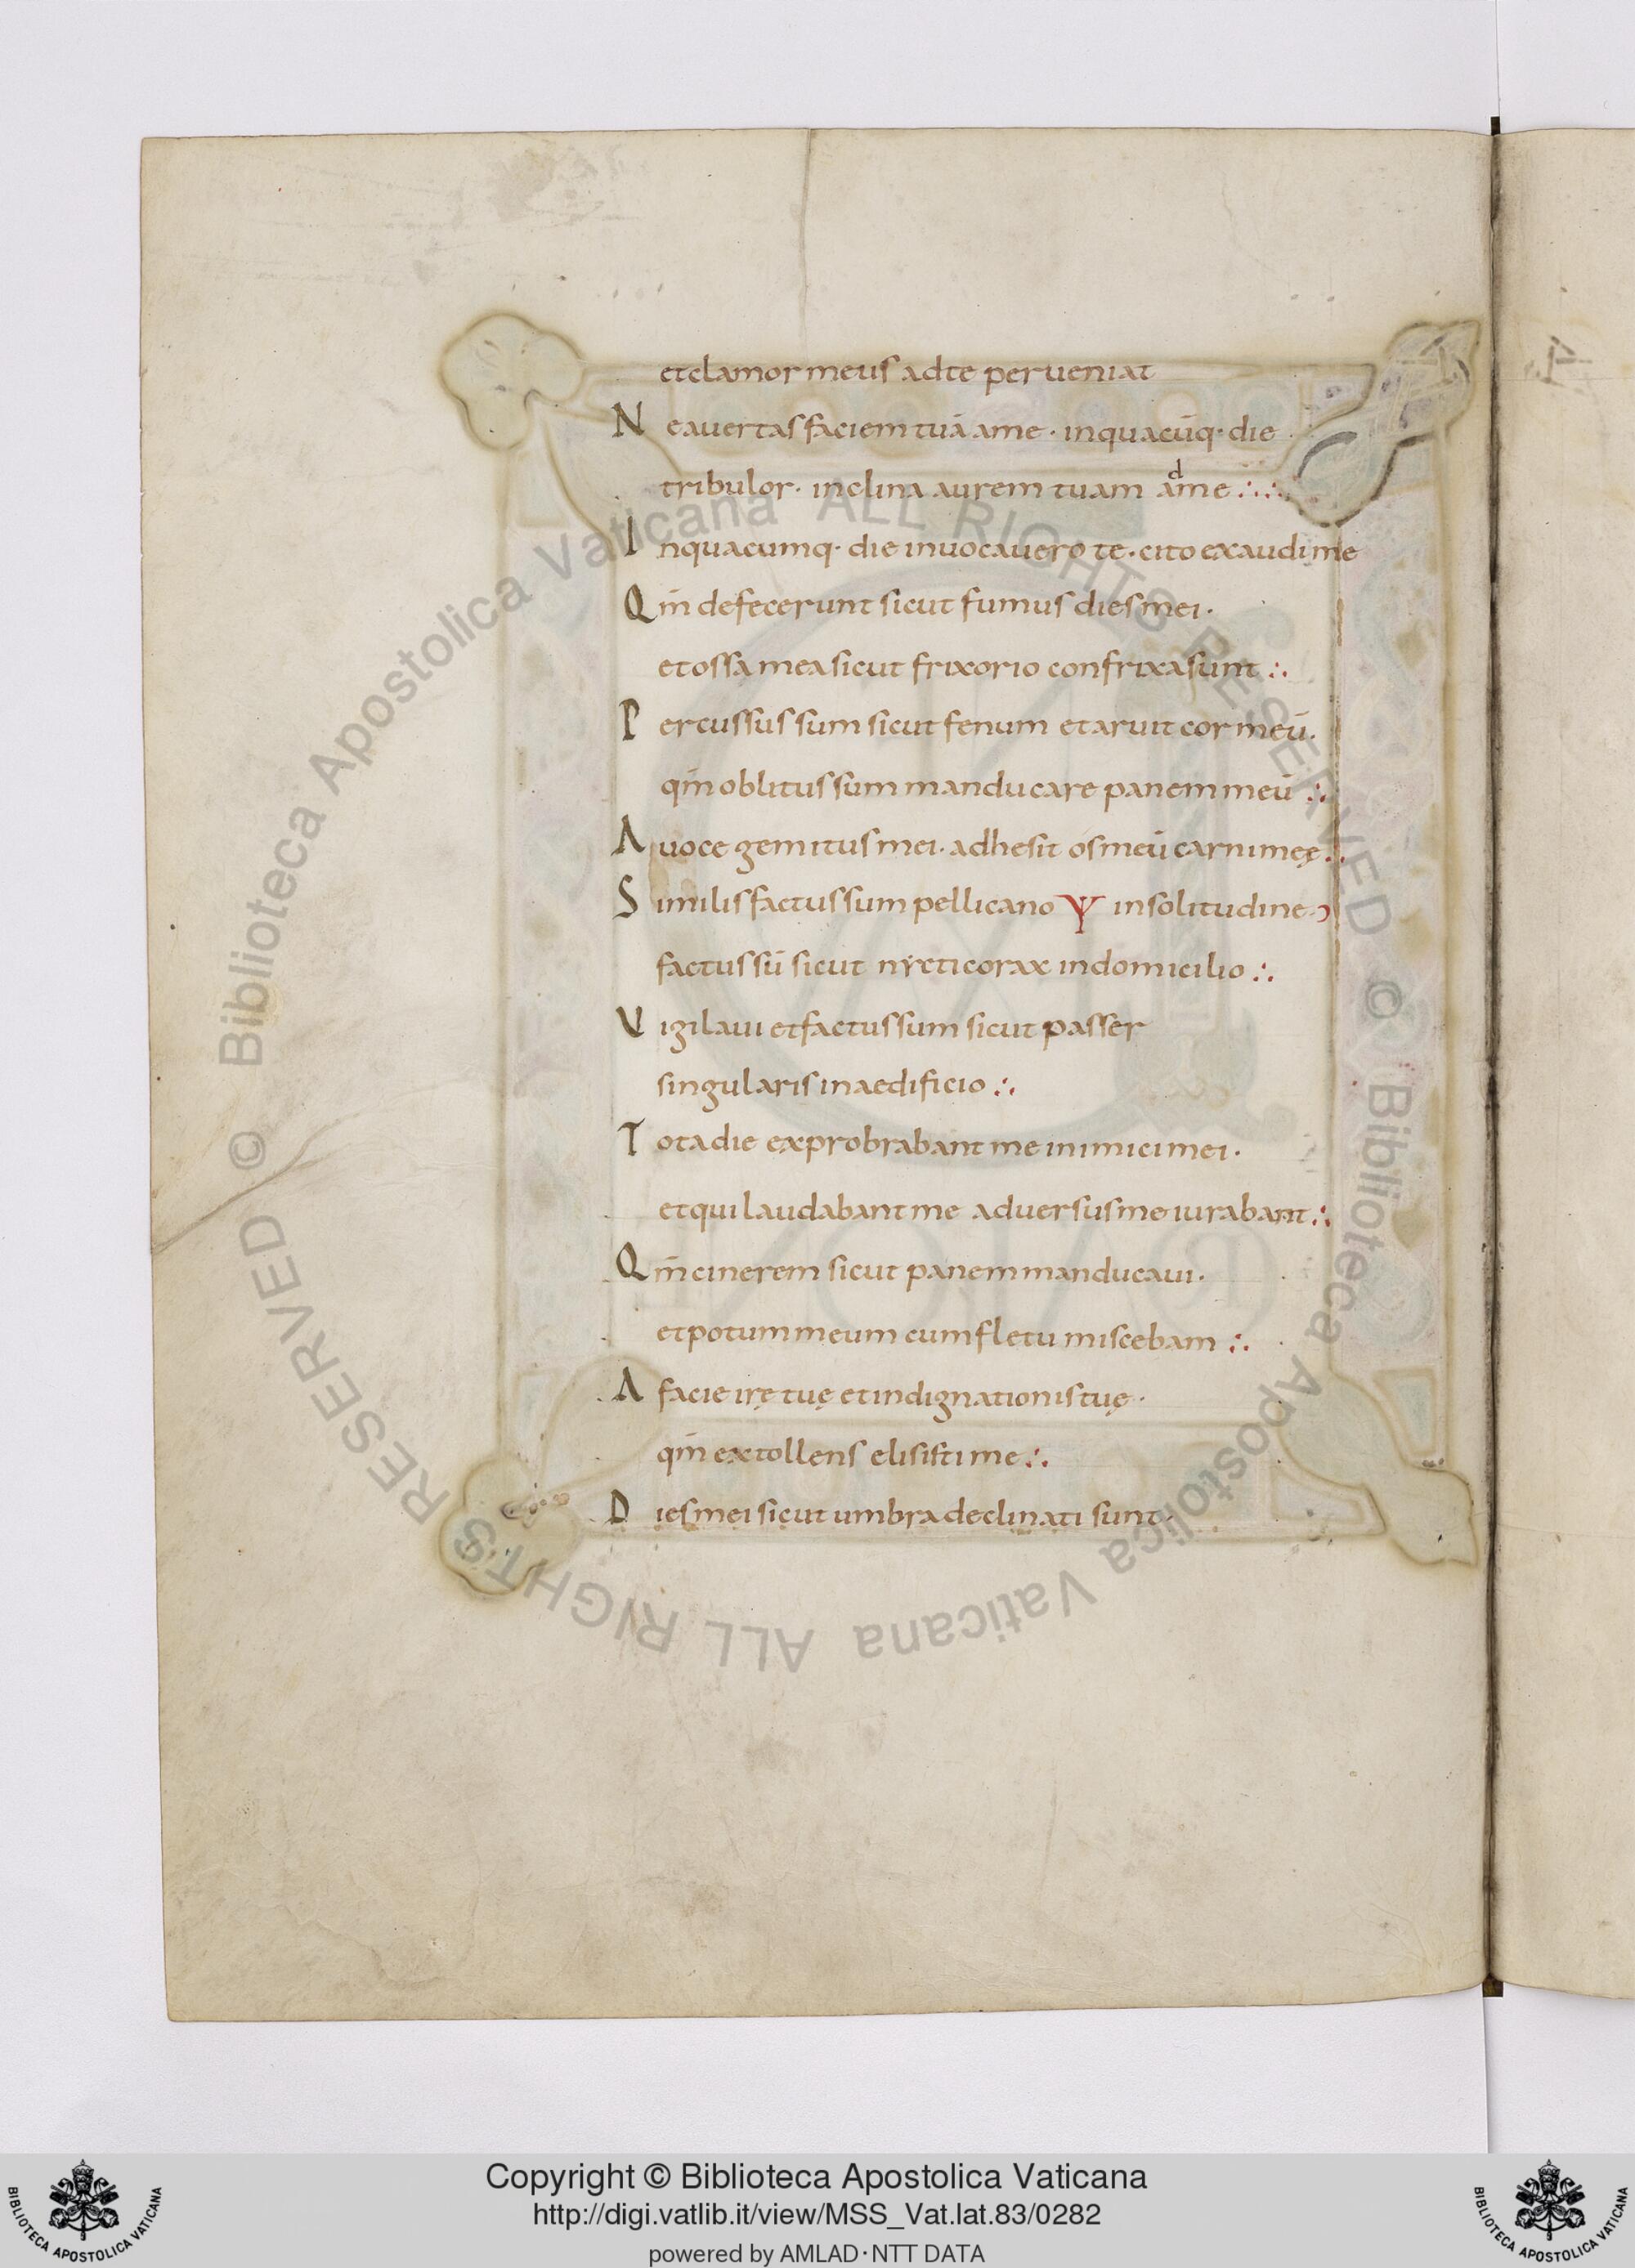 et clamor meus ad te perueniat
Ne auertas faciem tuā a me · in quacūq· die
tribulor · inclina aurem tuam adme ∴ ∴
In quacumq· die inuocauero te · cito exaudi me
Qm̄ defecerunt sicut fumus dies mei ·
et ossa mea sicut frixorio confrixa sunt ∴
Percussus sum sicut fenum et aruit cor meū ·
qm̄ oblitus sum manducare panem meū ∴
A uoce gemitus mei · adhesit os meū carni meę ∴
Similis factus sum pellicano Ψ in solitudine
factus sū sicut nycticorax in domicilio ∴
Vigilaui et factus sum sicut passer
singularis in aedificio ∴
Tota die exprobrabant me inimici mei ·
et qui laudabant me aduersus me iurabant ∴
Qm̄ cinerem sicut panem manducaui ·
et potum meum cum fletu miscebam ∴
A facie irę tuę et indignationis tuę ·
qm̄ extollens elisisti me ∴
Dies mei sicut umbra declinati sunt ·
© Biblioteca Apostolica Vaticana ALL RIGHTS RESERVED © Biblioteca Apostolica Vaticana ALL RIGHTS RESERVED
Copyright © Biblioteca Apostolica Vaticana
http://digi.vatlib.it/view/MSS_Vat.lat.83/0282
powered by AMLAD·NTT DATA
BIBLIOTECA APOSTOLICA VATICANA
BIBLIOTECA APOSTOLICA VATICANA